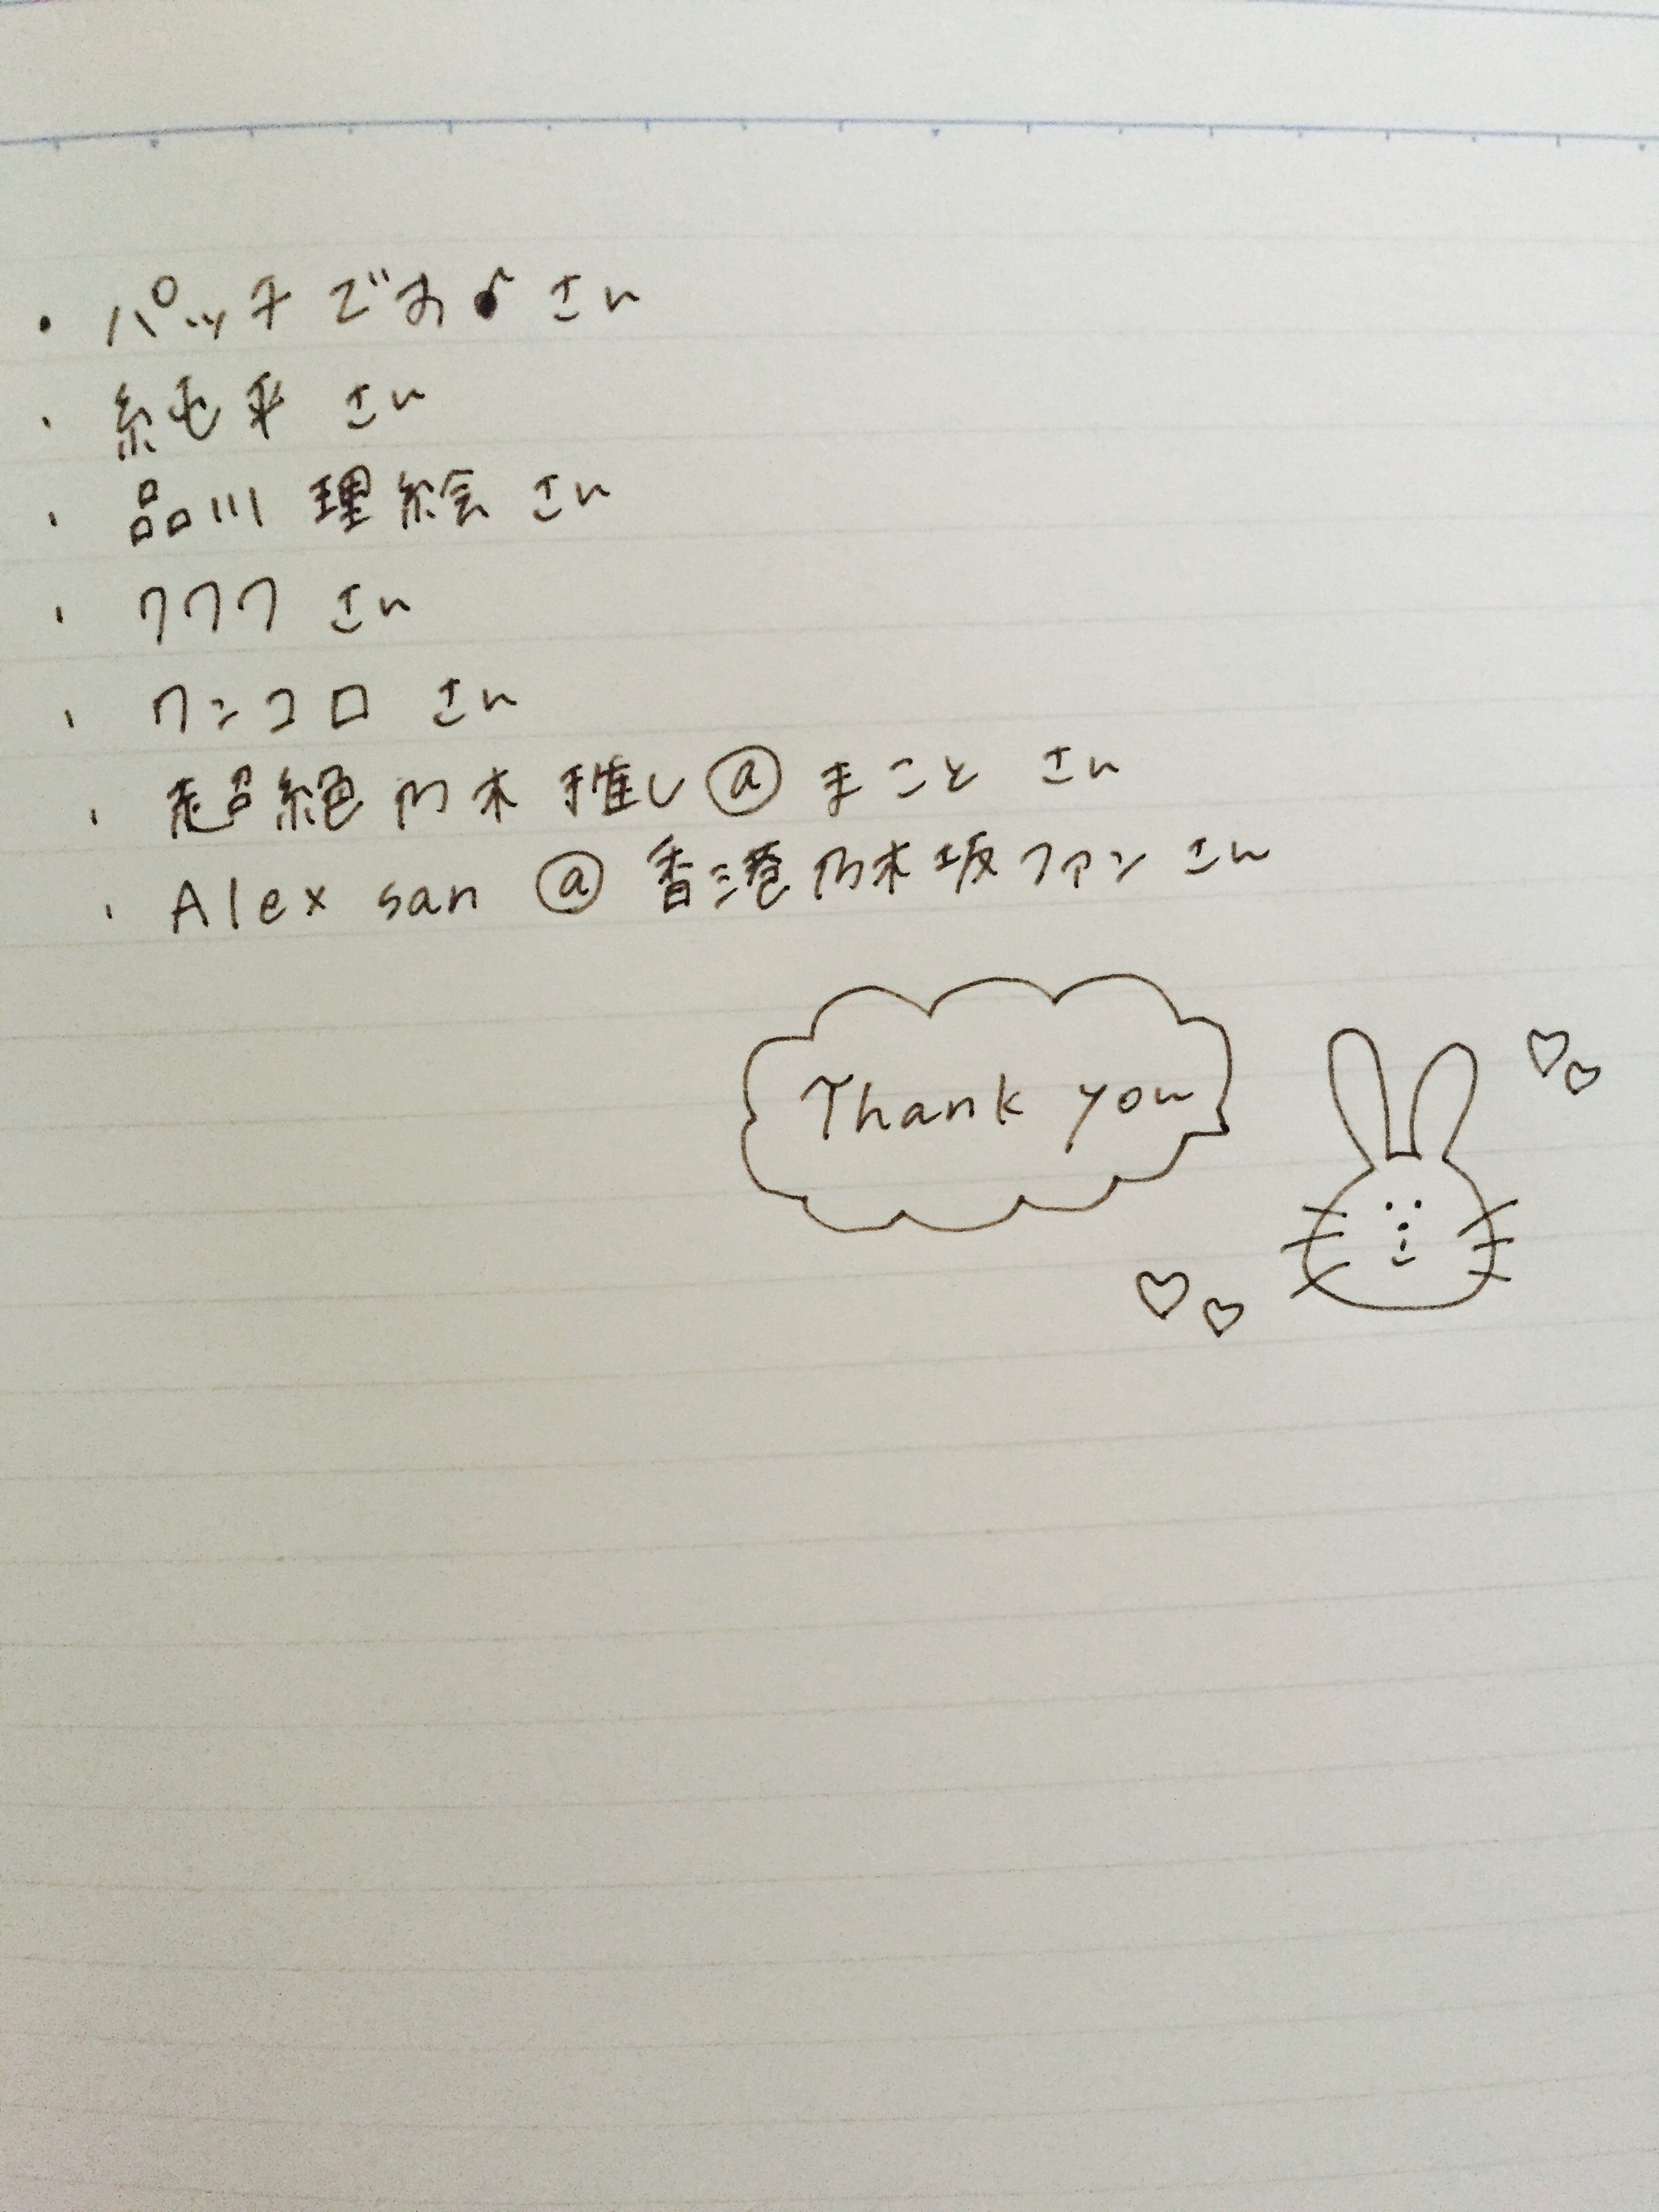 ・パッチでお♪さん
・純平さん
・品川 理絵さん
・ワワワさん
・ワンコロさん
・超絶乃木推し@まことさん
・Alex san @香港乃木坂ファンさん
Thank you